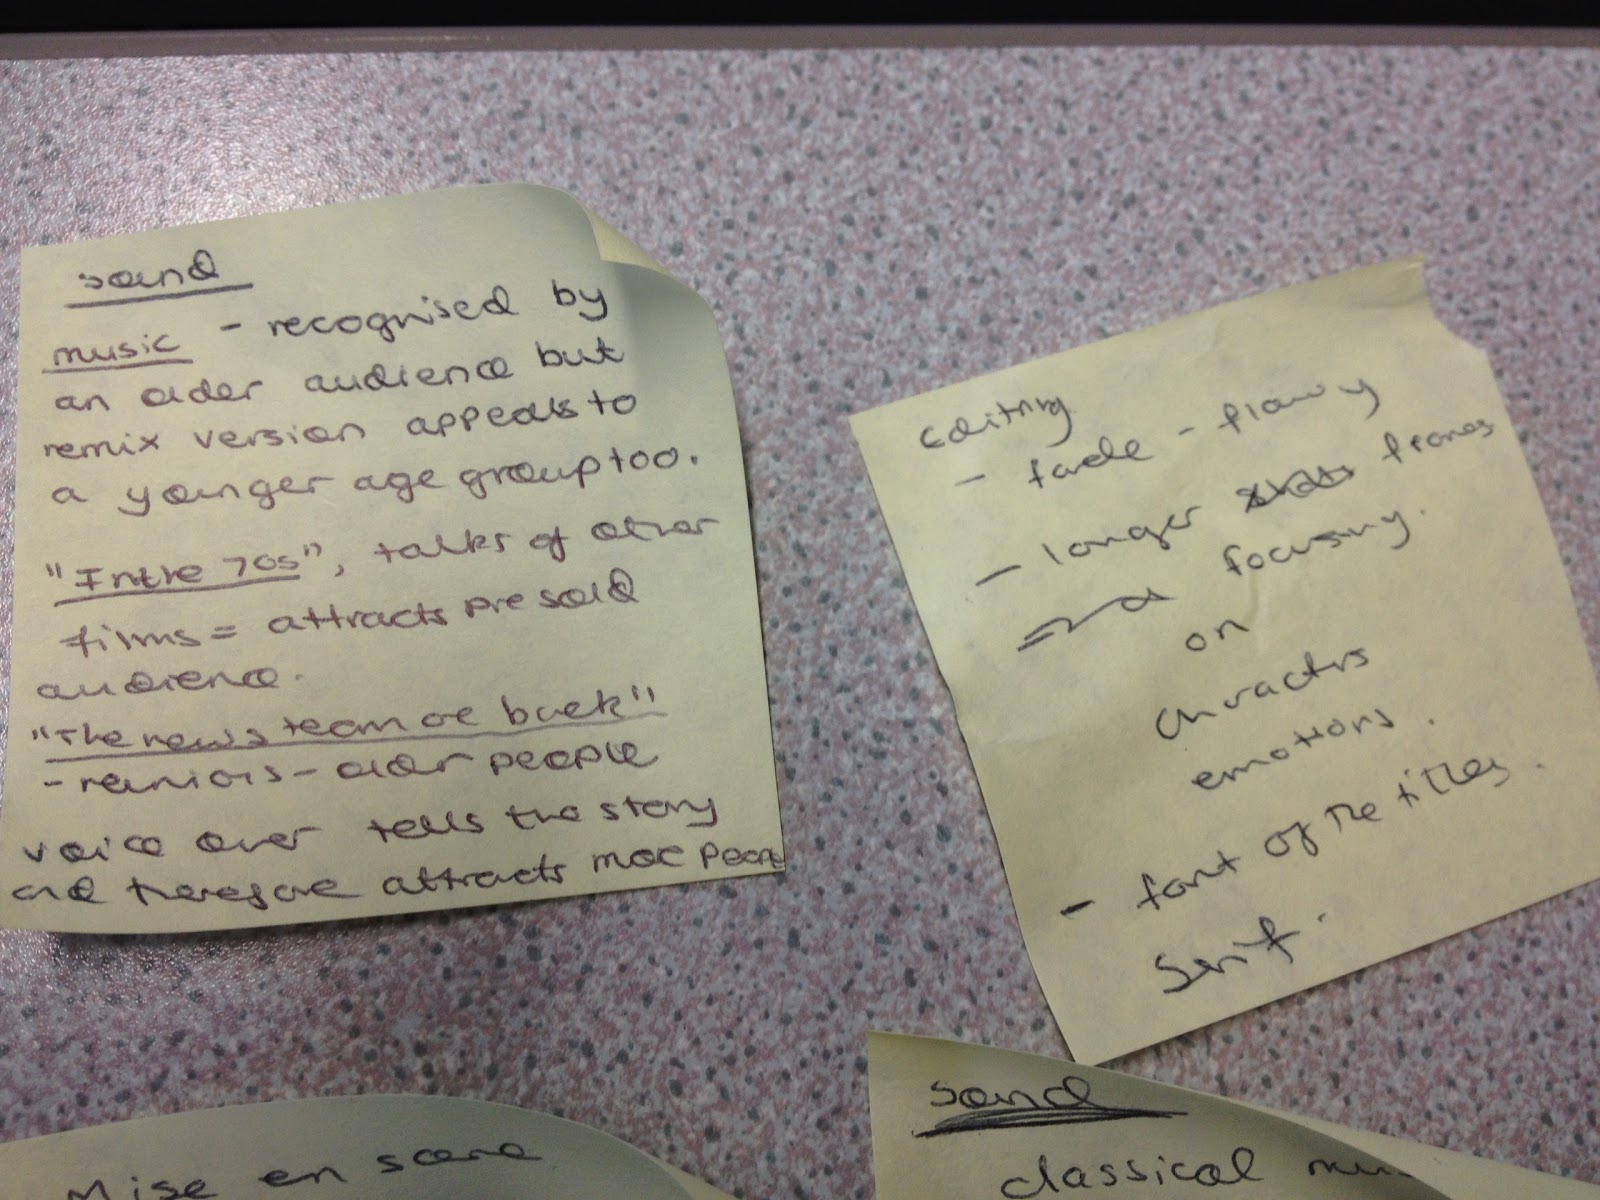 sound
music - recognised by
an older audience but
remix version appeals to
a younger age group too.
"In the 70s", talks of other
films = attracts pre sold
audience.
"The news team are back"
- reunions - older people
voice over tells the story
and therefore attracts more
Editing
- fade - flowy
- longer frames
focusing
on
characters
emotions.
- font of the titles.
Serif.
Mise en scene
sound
classical